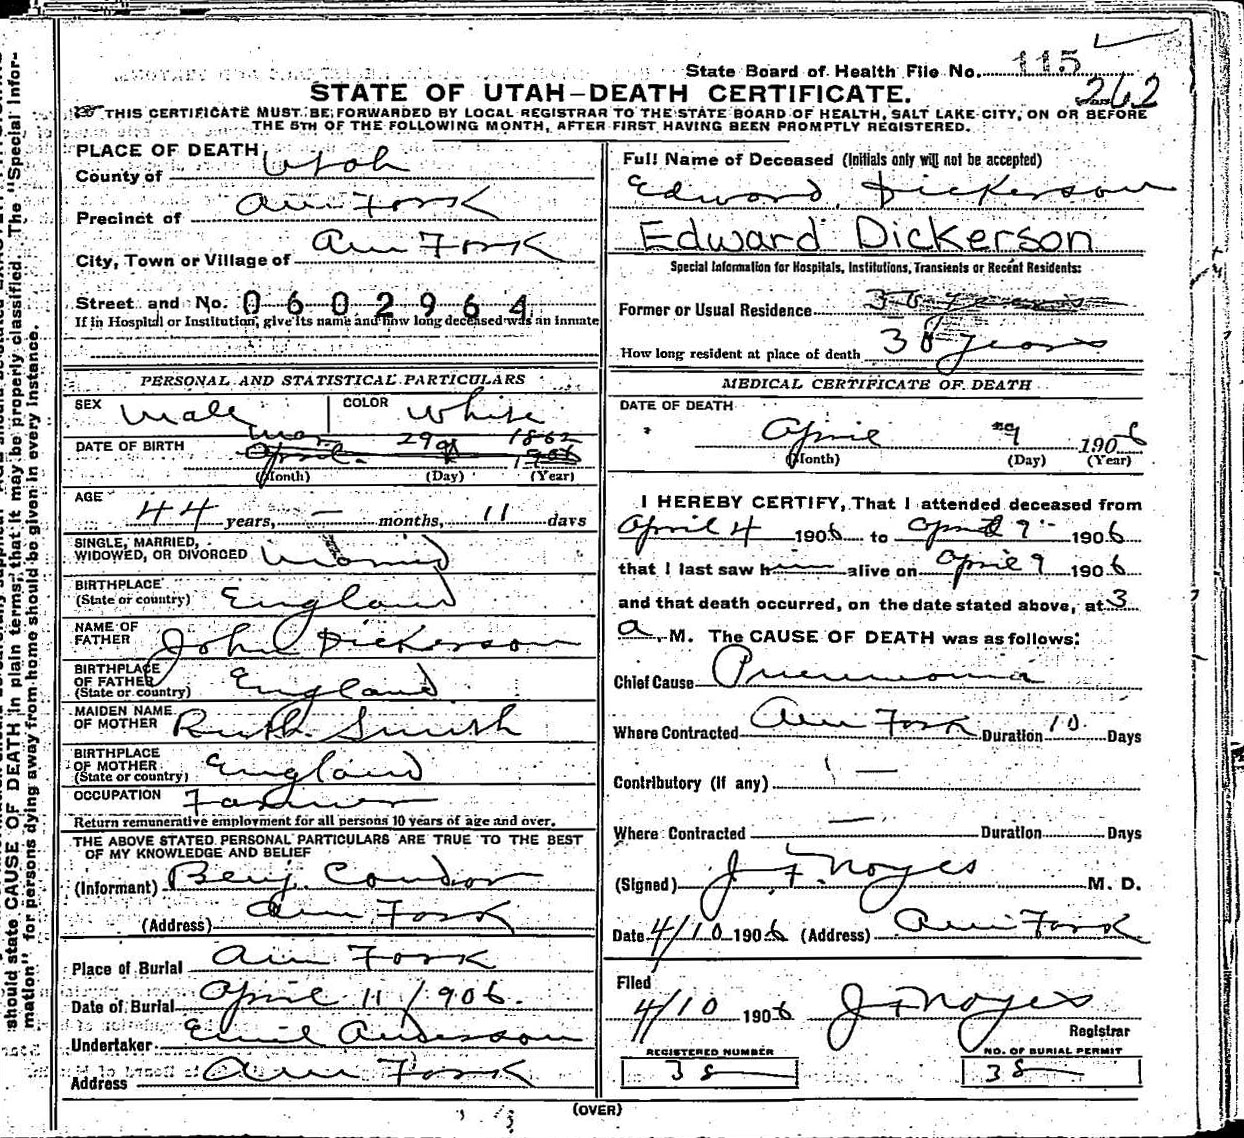 State Board of Health File No. 115
262
STATE OF UTAH—DEATH CERTIFICATE.
THIS CERTIFICATE MUST BE FORWARDED BY LOCAL REGISTRAR TO THE STATE BOARD OF HEALTH, SALT LAKE CITY, ON OR BEFORE
THE 5TH OF THE FOLLOWING MONTH, AFTER FIRST HAVING BEEN PROMPTLY REGISTERED.
PLACE OF DEATH
County of Utah
Precinct of Am Fork
City, Town or Village of Am Fork
Street and No. 0602964
If in Hospital or Institution, give its name and how long deceased was an inmate
PERSONAL AND STATISTICAL PARTICULARS
SEX Male COLOR White
Mar 29 1862
DATE OF BIRTH April 9 1906
(Month) (Day) (Year)
AGE 44 years, — months, 11 days
SINGLE, MARRIED,
WIDOWED, OR DIVORCED Married
BIRTHPLACE
(State or country) England
NAME OF
FATHER John Dickerson
BIRTHPLACE
OF FATHER
(State or country) England
MAIDEN NAME
OF MOTHER Ruth Smith
BIRTHPLACE
OF MOTHER
(State or country) England
OCCUPATION Farmer
Return remunerative employment for all persons 10 years of age and over.
THE ABOVE STATED PERSONAL PARTICULARS ARE TRUE TO THE BEST
OF MY KNOWLEDGE AND BELIEF
(Informant) Benj. Condor
(Address) Am Fork
Place of Burial Am Fork
Date of Burial April 11/1906.
Undertaker Emil Anderson
Address Am Fork
Full Name of Deceased (Initials only will not be accepted)
Edward Dickerson
Edward Dickerson
Special Information for Hospitals, Institutions, Transients or Recent Residents:
Former or Usual Residence 38 years
How long resident at place of death 38 years
MEDICAL CERTIFICATE OF DEATH
DATE OF DEATH
April 9 1906
(Month) (Day) (Year)
I HEREBY CERTIFY, That I attended deceased from
April 4 1906 to April 9 1906
that I last saw him alive on April 9 1906
and that death occurred, on the date stated above, at 3
a. M. The CAUSE OF DEATH was as follows:
Chief Cause Pneumonia
Where Contracted Am Fork Duration 10 Days
Contributory (if any) —
Where Contracted — Duration Days
(Signed) J. F. Noyes M. D.
Date 4/10 1906 (Address) Am Fork
Filed
4/10 1906 J F Noyes
Registrar
REGISTERED NUMBER
38
NO. OF BURIAL PERMIT
38
(OVER)
should state CAUSE OF DEATH in plain terms, that it may be properly classified. The "Special Infor-
mation" for persons dying away from home should be given in every instance.